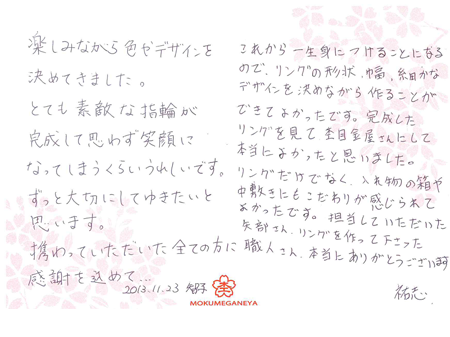 楽しみながら色やデザインを
決めてきました。
とても素敵な指輪が
完成して思わず笑顔に
なってしまうくらいうれしいです。
ずっと大切にしてゆきたいと
思います。
携わっていただいた全ての方に
感謝を込めて…
2013.11.23 智子
これから一生身につけることになる
ので、リングの形状、幅、細かな
デザインを決めながら作ることが
できてよかったです。完成した
リングを見て杢目金屋さんにして
本当によかったと思いました。
リングだけでなく、入れ物の箱や
中敷きにもこだわりが感じられて
よかったです。担当していただいた
矢部さん、リングを作って下さった
職人さん、本当にありがとうございます
祐志
MOKUMEGANEYA